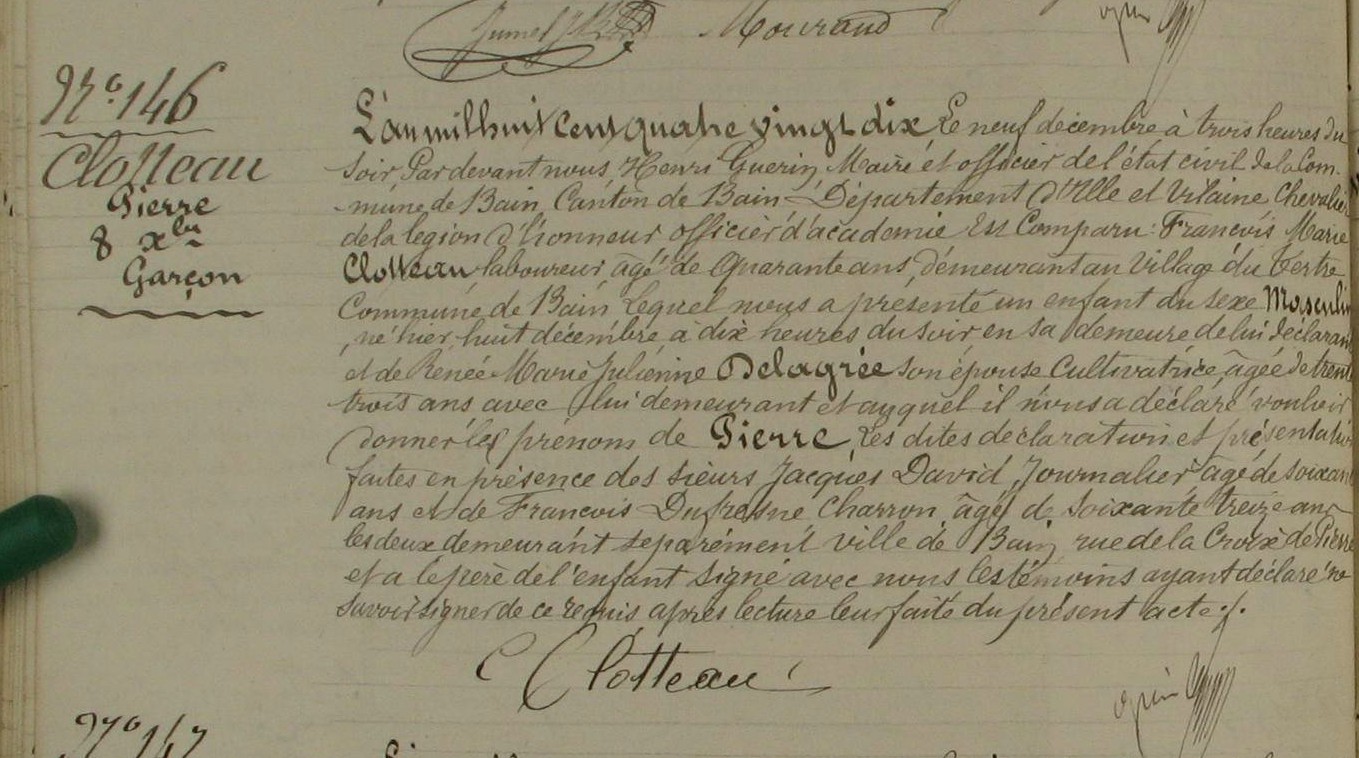 Mourand
N° 146
Clotteau
Pierre
8 xbre
Garçon
L'an mil huit cent quatre vingt dix Le neuf décembre à trois heures du
soir, Par devant nous Henri Guerin, Maire et officier de l'état civil de la Com-
-mune de Bain Canton de Bain Département d'Ille et Vilaine Chevalier
de la légion d'honneur officier d'académie Est Comparu: Francois Marie
Clotteau laboureur, agé de Quarante ans, demeurant au Village du Tertre
Commune de Bain Lequel nous a présenté un enfant du sexe Masculin
, né hier, huit décembre à dix heures du soir en sa demeure de lui déclarant
et de Renée Marie Julienne Delagrée son épouse Cultivatrice, agée de trente
trois ans avec lui demeurant et auquel il nous a déclaré vouloir
donner les prénom de Pierre, Les dites déclaration et présentation
faites en présence des sieurs Jacques David, Journalier agé de soixante
ans et de Francois Dufresne Charron, âgé de soixante treize ans
les deux demeurant séparément ville de Bain, rue de la Croix de Pierre
et a le père de l'enfant signé avec nous les témoins ayant déclaré ne
savoir signer de ce requis après lecture leur faite du présent acte ./.
Clotteau
N° 147